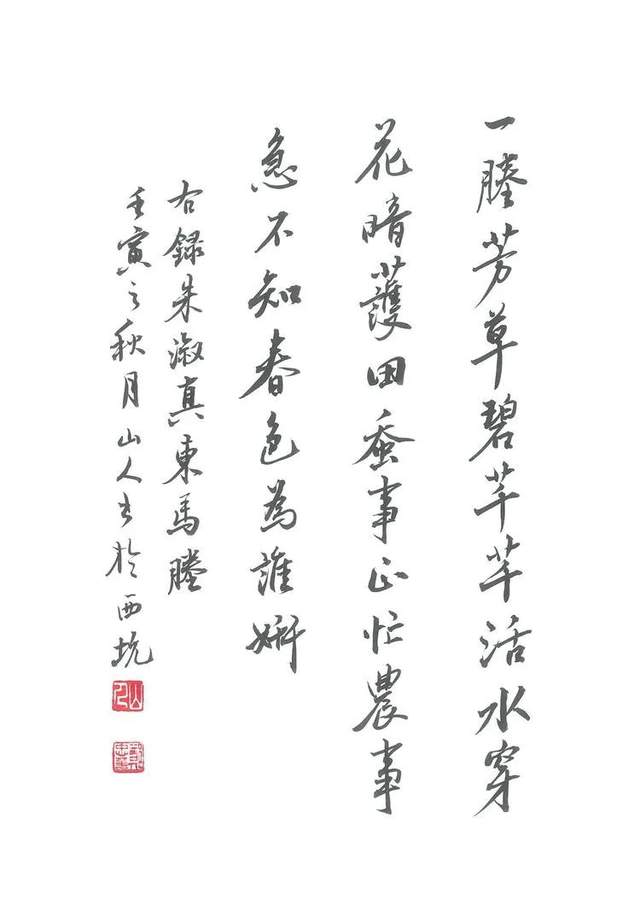 一塍芳草碧芊芊活水穿
花暗護田蚕事正忙農事
急不知春色為誰妍
右録朱淑真東馬塍
壬寅之秋月山人书於西坑
山人